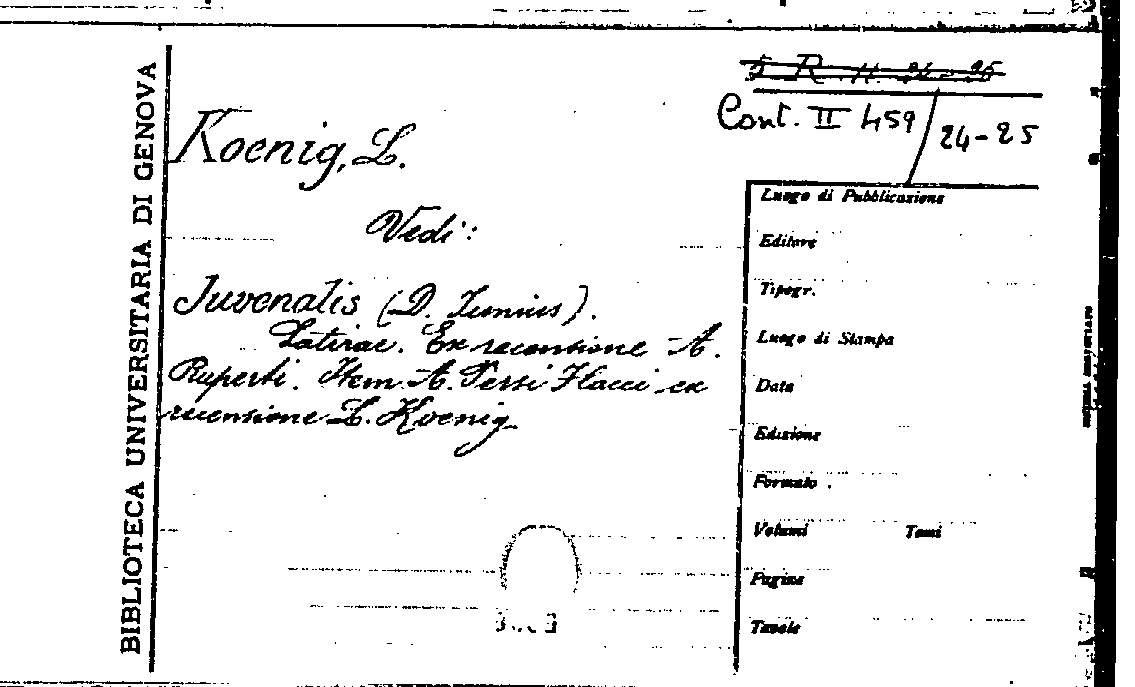 BIBLIOTECA UNIVERSITARIA DI GENOVA
5 R. H. 24-25
Cont. II 459 / 24-25
Koenig, L.
Vedi:
Juvenalis (D. Junius).
Satirae. Ex recensione A.
Ruperti. Item A. Persi Flacci ex
recensione L. Koenig
Luogo di Pubblicazione
Editore
Tipogr.
Luogo di Stampa
Data
Edizione
Formato
Volumi Tomi
Pagine
Tavole